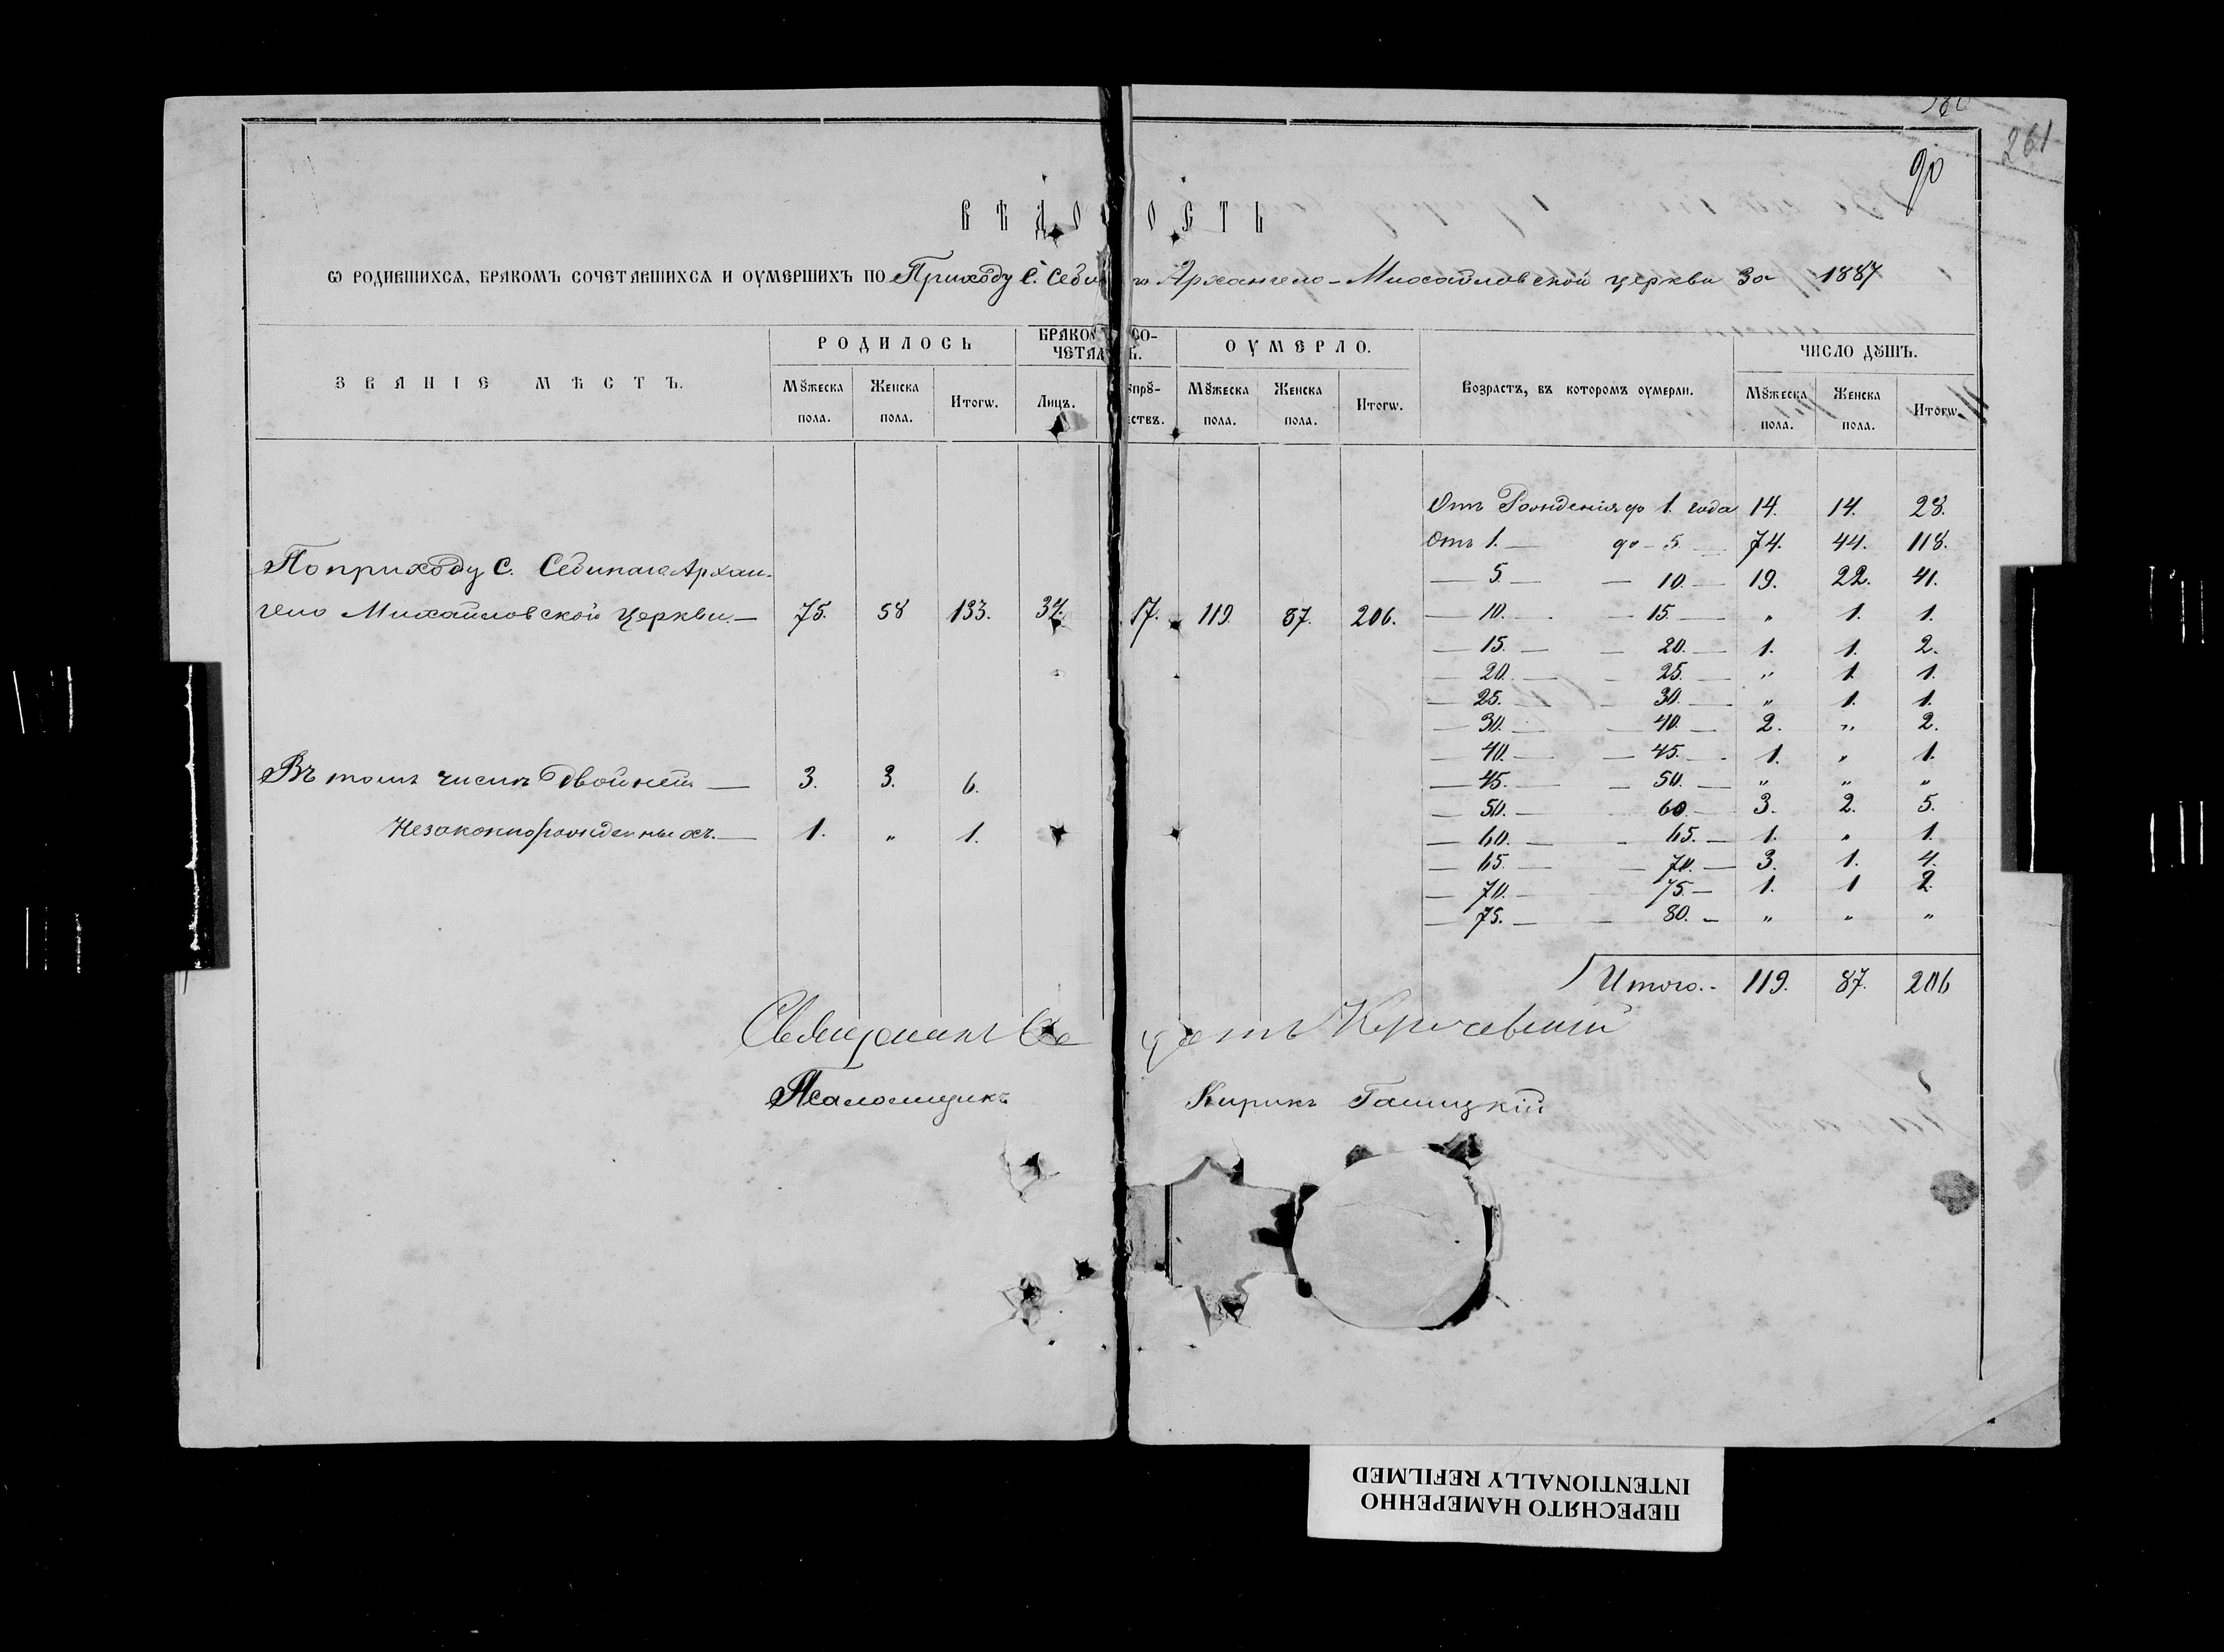 261
90
ВѢДО ОСТЬ
Ѡ РОДИВШИХСѦ, БРАКОМЪ СОЧЕТАВШИХСѦ И ОУМЕРШИХЪ ПО Приходу С. Седи го Архангело-Михайловской церкви за 1887
ЗВАНІЕ МѢСТЪ. РОДИЛОСЬ БРАКО СО- ОУМЕРЛО. Возрастъ, въ которомъ оумерли. ЧИСЛО ДꙊШЪ.
ЧЕТАЛ Ь.
Мꙋжеска Женска Итогѡ. Лицъ. ꙋпрꙋ- Мꙋжеска Женска Итогѡ. Мꙋжеска Женска Итогѡ.
пола. пола. ествъ. пола. пола. пола. пола.
Отъ Рожденія до 1. года 14. 14. 28.
Отъ 1. — до — 5. — 74. 44. 118.
По приходу С. Сединаго Архан-
— 5. — — 10. — 19. 22. 41.
гело Михайловской Церкви. — 75. 58 133. 34. 17. 119. 87. 206. — 10. — — 15. — „ 1. 1.
— 15. — — 20. — 1. 1. 2.
— 20. — — 25. — „ 1. 1.
— 25. — — 30. — „ 1. 1.
— 30. — — 40. — 2. „ 2.
— 40. — — 45. — 1. „ 1.
Въ томъ числѣ двойней — 3. 3. 6. — 45. — — 50. — „ „ „
— 50. — 60. — 3. 2. 5.
Незаконнорожденныхъ. — 1. „ 1. — 60. — — 65. — 1. „ 1.
— 65. — — 70. — 3. 1. 4.
— 70. — — 75. — 1. 1 2.
— 75. — — 80. — „ „ „
Итого. 119. 87. 206
Священникъ
Псаломщикъ Кирикъ Галицкій
ПЕРЕСНЯТО НАМЕРЕННО
INTENTIONALLY REFILMED